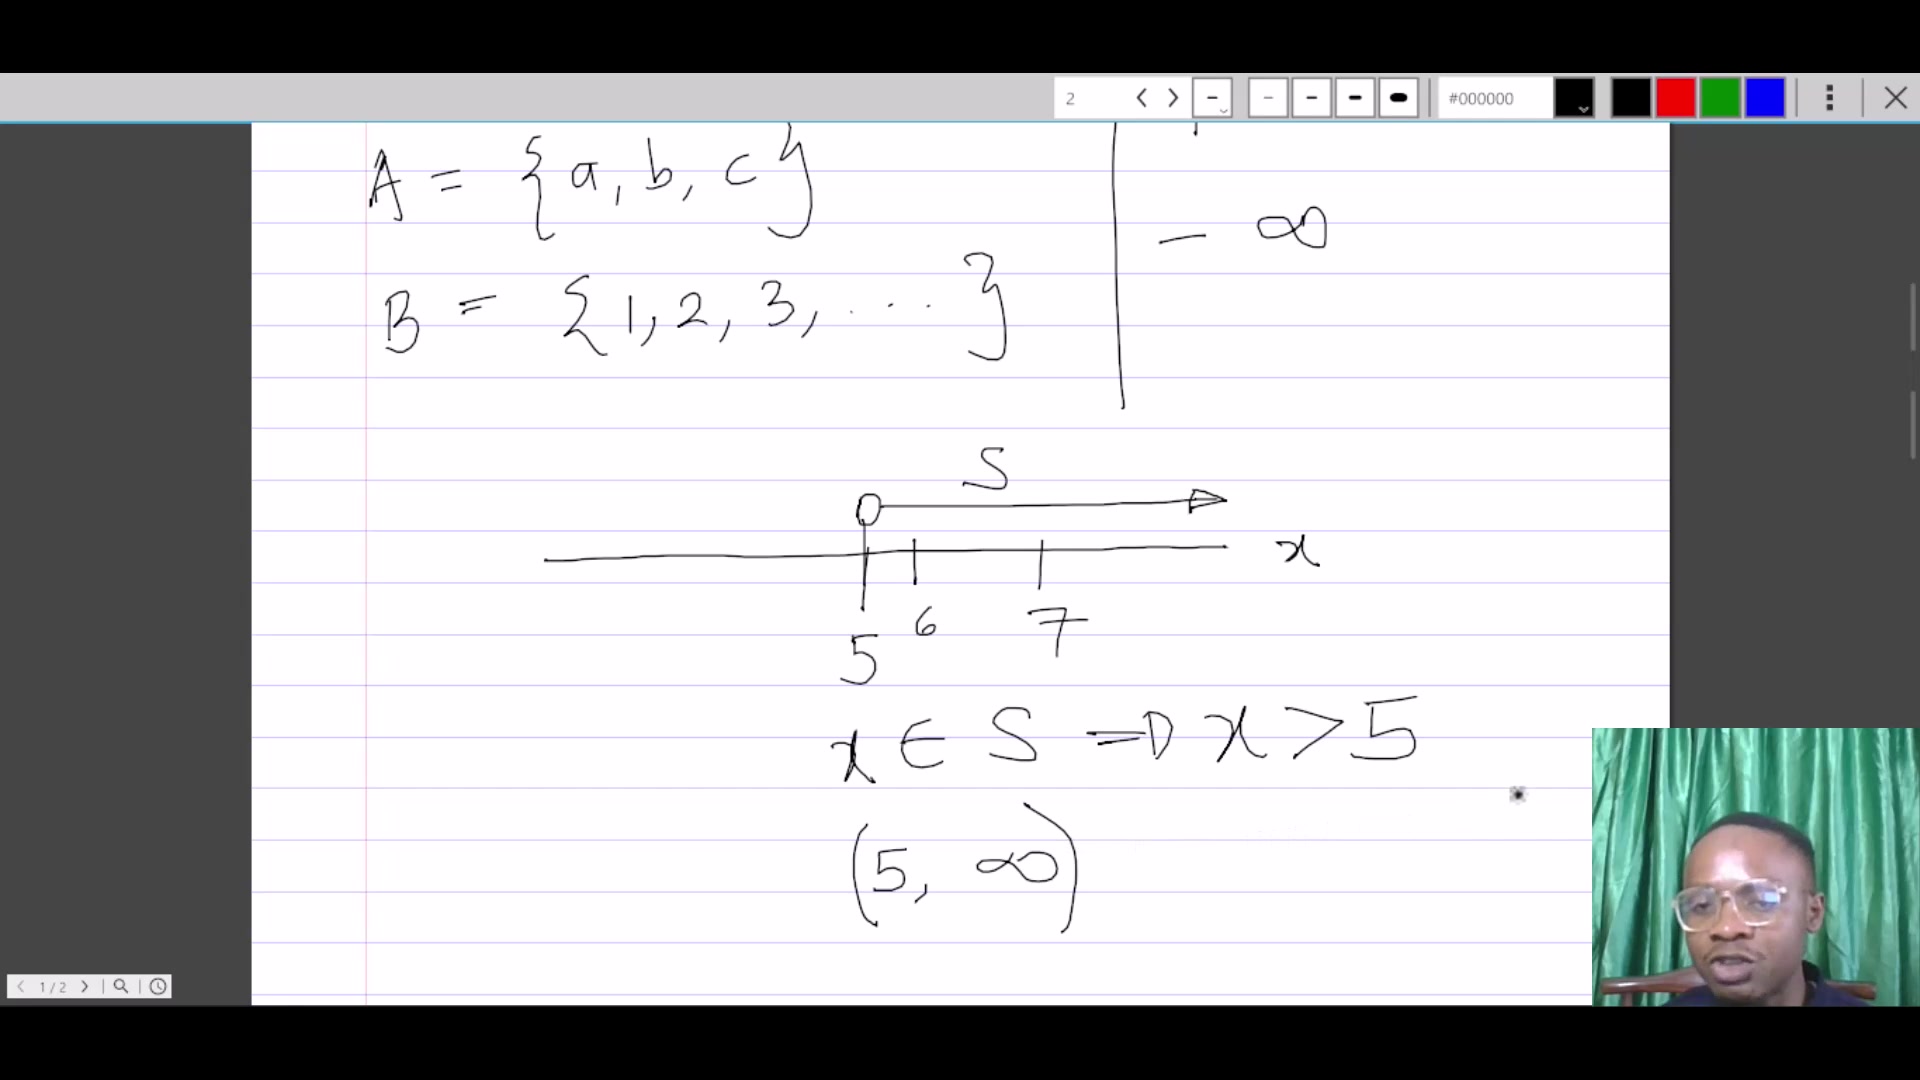 2
#000000
A = {a, b, c}
- ∞
B = {1, 2, 3, ... }
S
x
5 6 7
x ∈ S ⇒ x > 5
(5, ∞)
1/2